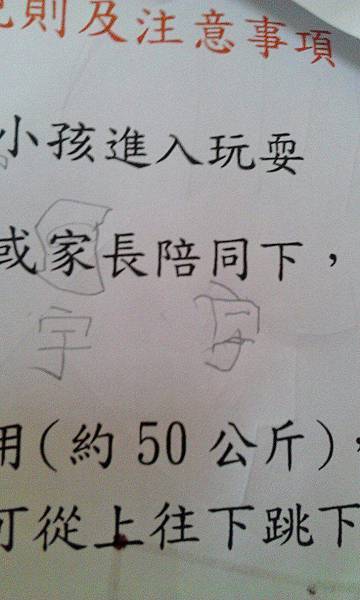 則及注意事項
小孩進入玩耍
或家長陪同下，
字
用(約50公斤)，
可從上往下跳下